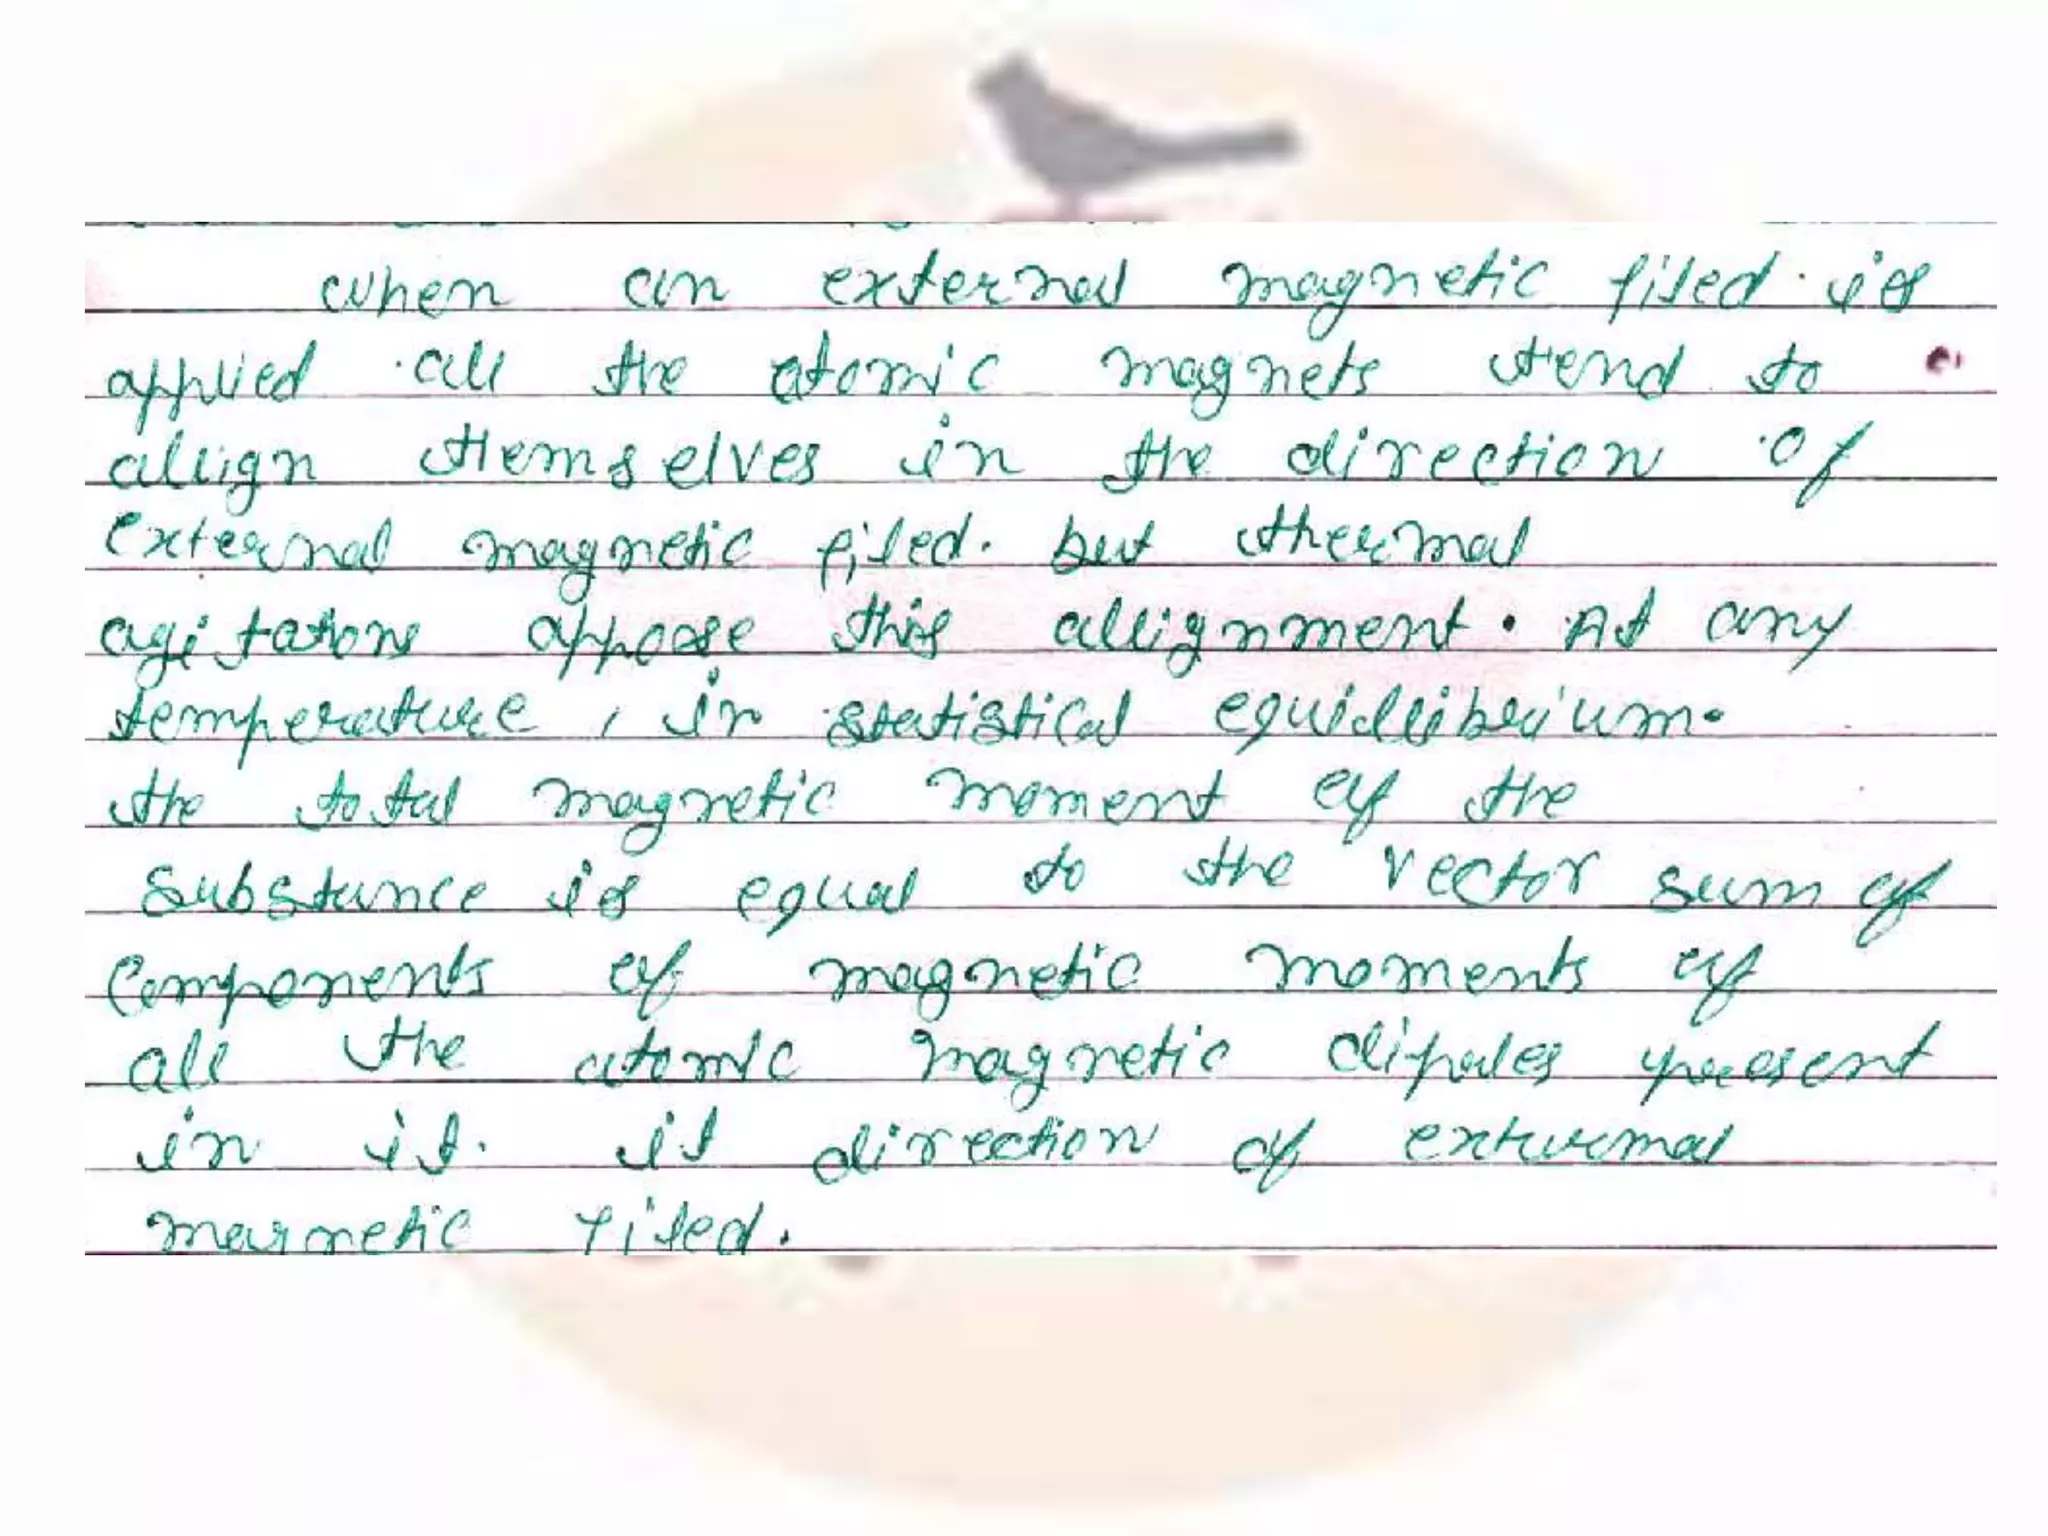 when an external magnetic filed is
applied all the atomic magnets tend to
allign themselves in the direction of
external magnetic filed. but thermal
agitations appose this allignment. At any
temperature, in statistical equillibrium.
the total magnetic moment of the
substance is equal to the vector sum of
components of magnetic moments of
all the atomic magnetic dipoles present
in it. it direction of external
magnetic filed.